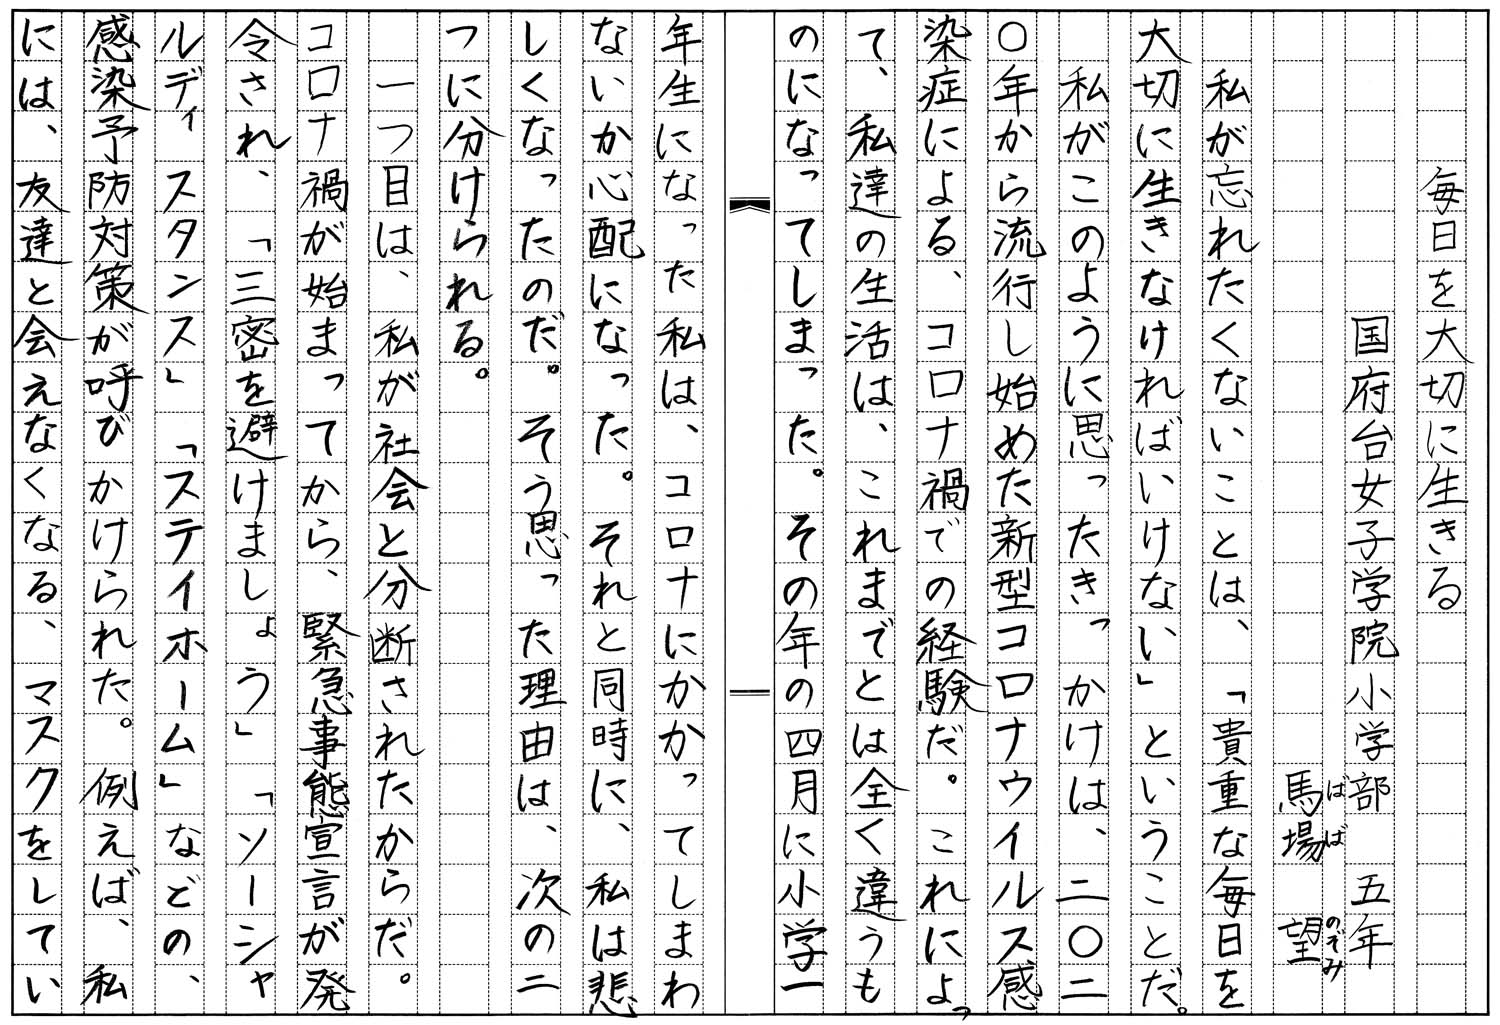 毎日を大切に生きる
国府台女子学院小学部　五年
馬場　望
ばば　のぞみ
　私が忘れたくないことは、「貴重な毎日を
大切に生きなければいけない」ということだ。
　私がこのように思ったきっかけは、二〇二
〇年から流行し始めた新型コロナウイルス感
染症による、コロナ禍での経験だ。これによっ
て、私達の生活は、これまでとは全く違うも
のになってしまった。その年の四月に小学一
年生になった私は、コロナにかかってしまわ
ないか心配になった。それと同時に、私は悲
しくなったのだ。そう思った理由は、次の二
つに分けられる。
　一つ目は、私が社会と分断されたからだ。
コロナ禍が始まってから、緊急事態宣言が発
令され、「三密を避けましょう」「ソーシャ
ルディスタンス」「ステイホーム」などの、
感染予防対策が呼びかけられた。例えば、私
には、友達と会えなくなる、マスクをしてい